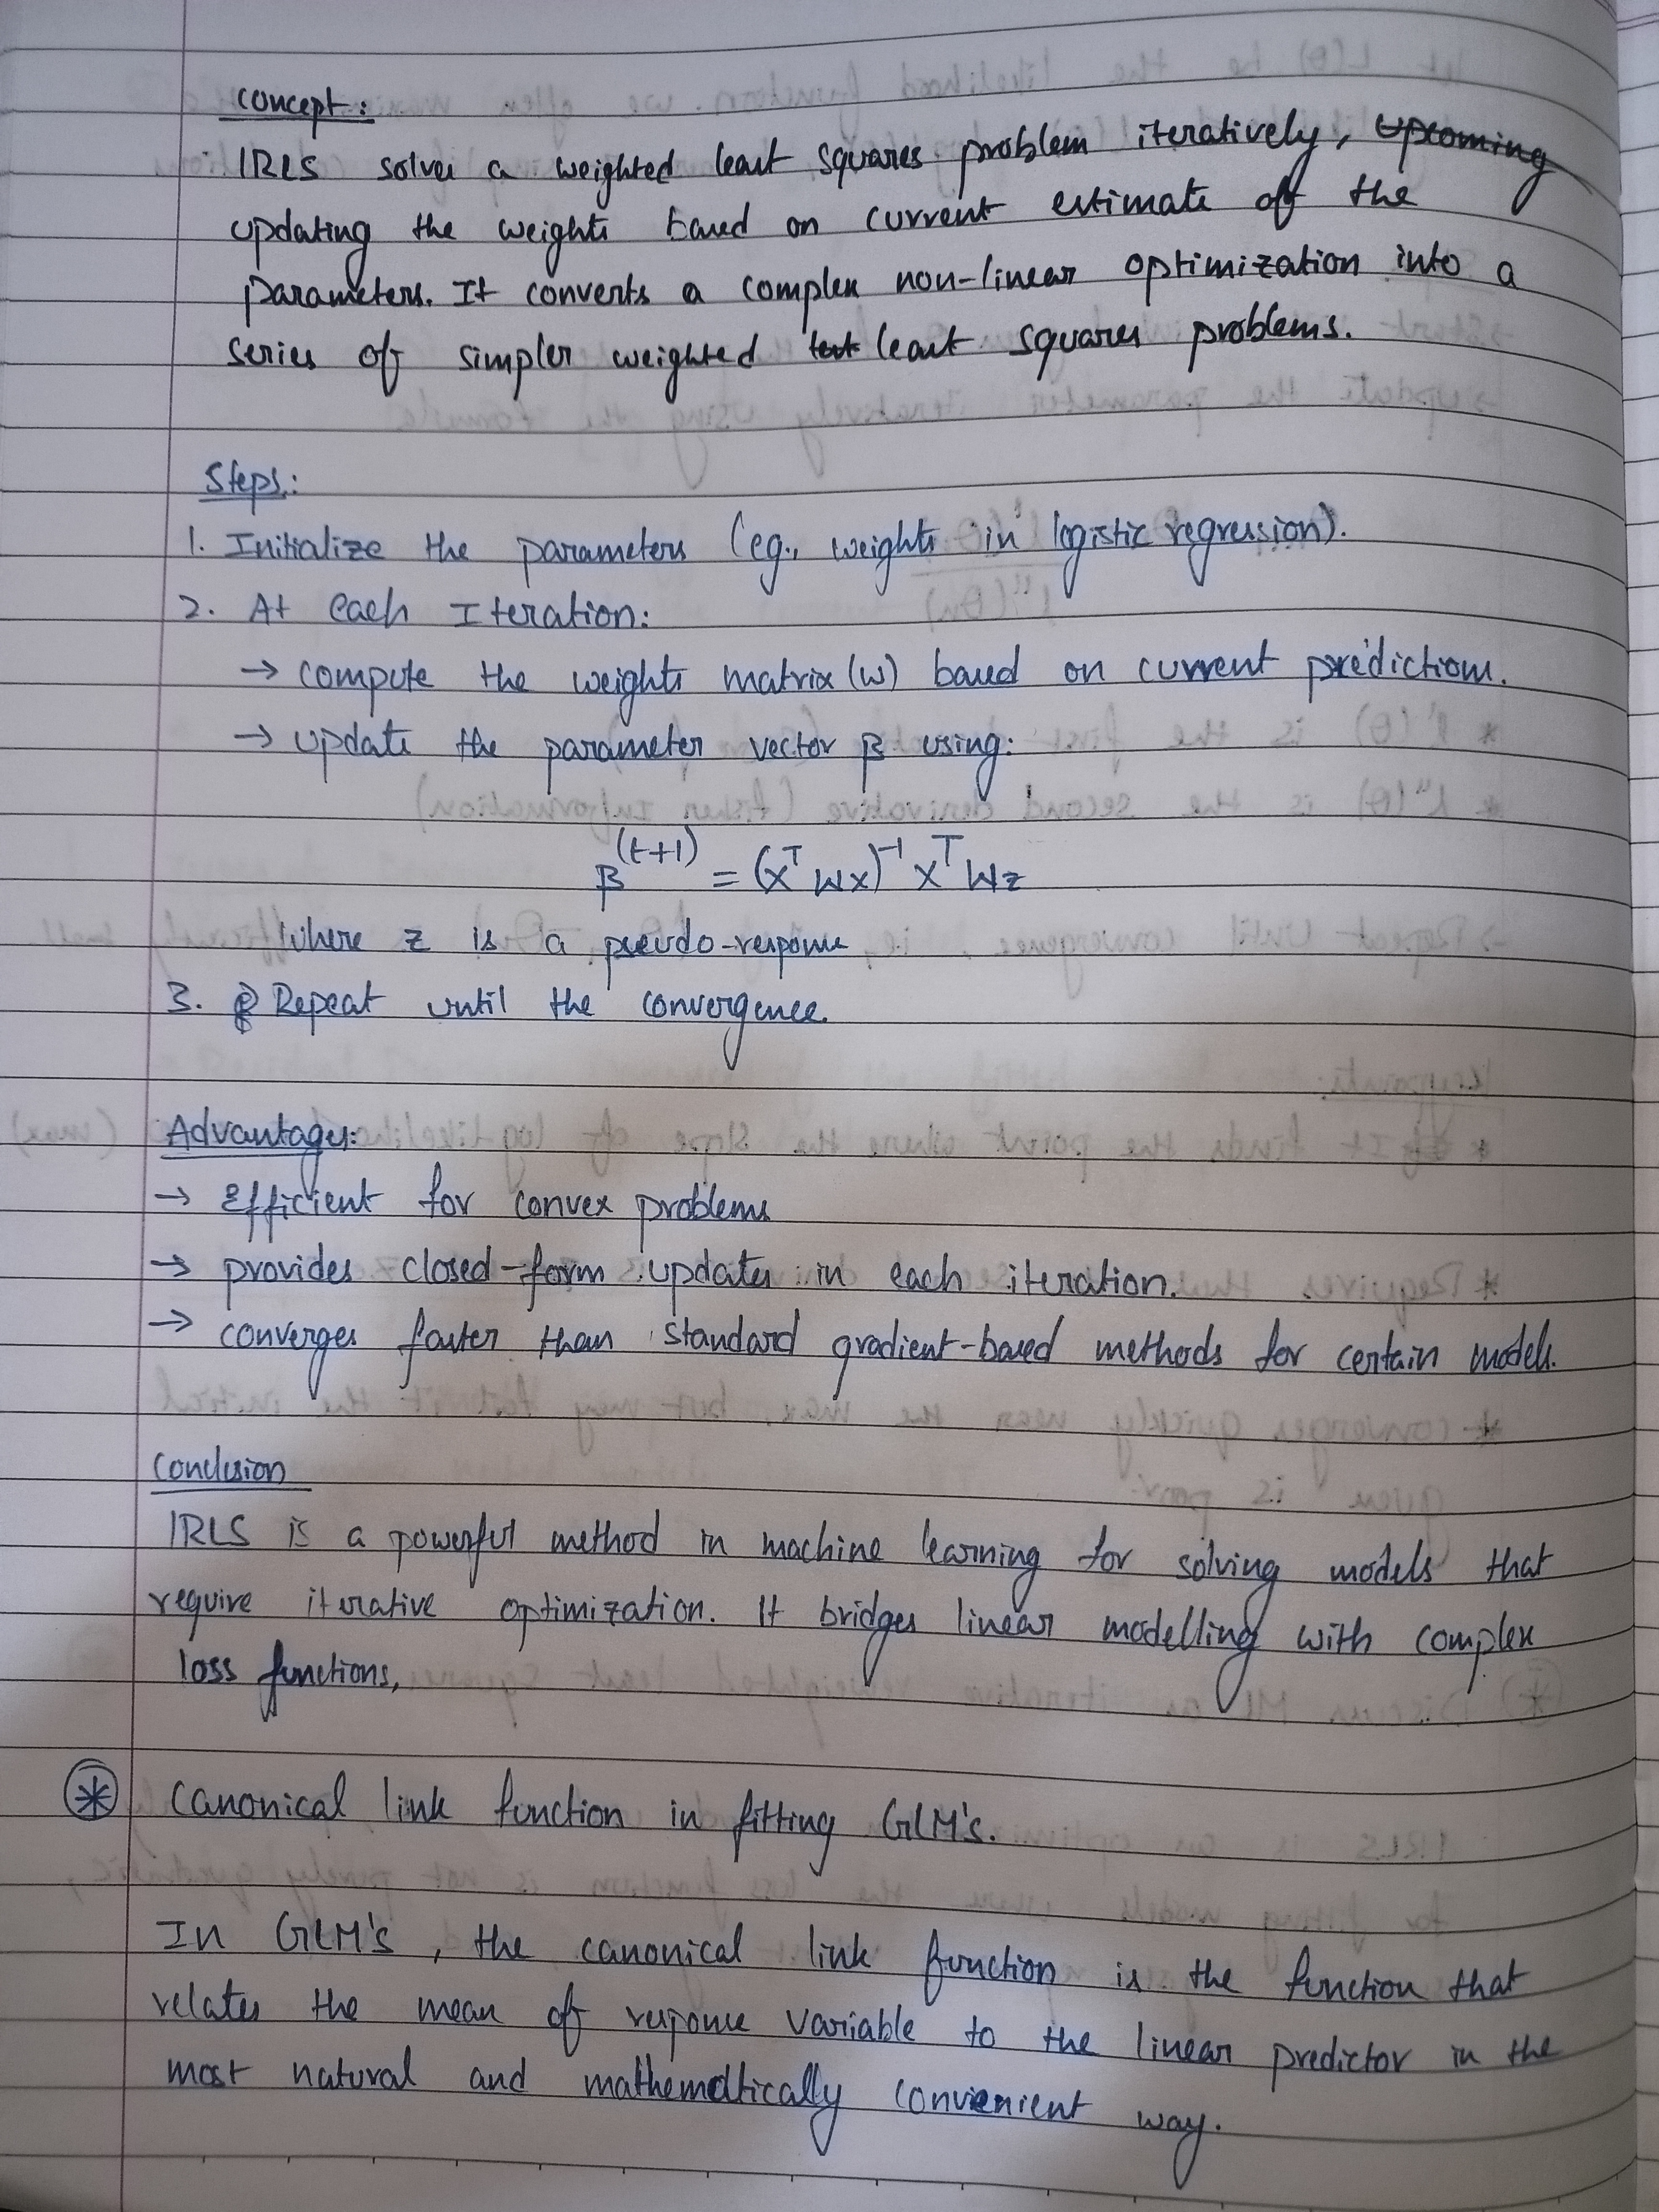 Concept:
IRLS solves a weighted least squares problem iteratively, Upcoming
updating the weights based on current estimate of the
parameters. It converts a complex non-linear optimization into a
series of simpler weighted least squares problems.
Steps:
1. Initialize the parameters (eg., weights in logistic regression).
2. At each Iteration:
→ compute the weights matrix (W) based on current predictions.
→ update the parameter vector β using:
β^(t+1) = (X^T WX)^-1 X^T Wz
Where z is a pseudo-response
3. Repeat until the convergence.
Advantages:
→ Efficient for convex problems
→ provides closed-form updates in each iteration.
→ converges faster than standard gradient-based methods for certain models.
Conclusion
IRLS is a powerful method in machine learning for solving models that
require iterative optimization. It bridges linear modelling with complex
loss functions,
* Canonical link function in fitting GLM's.
In GLM's, the canonical link function is the function that
relates the mean of response variable to the linear predictor in the
most natural and mathematically convienient way.